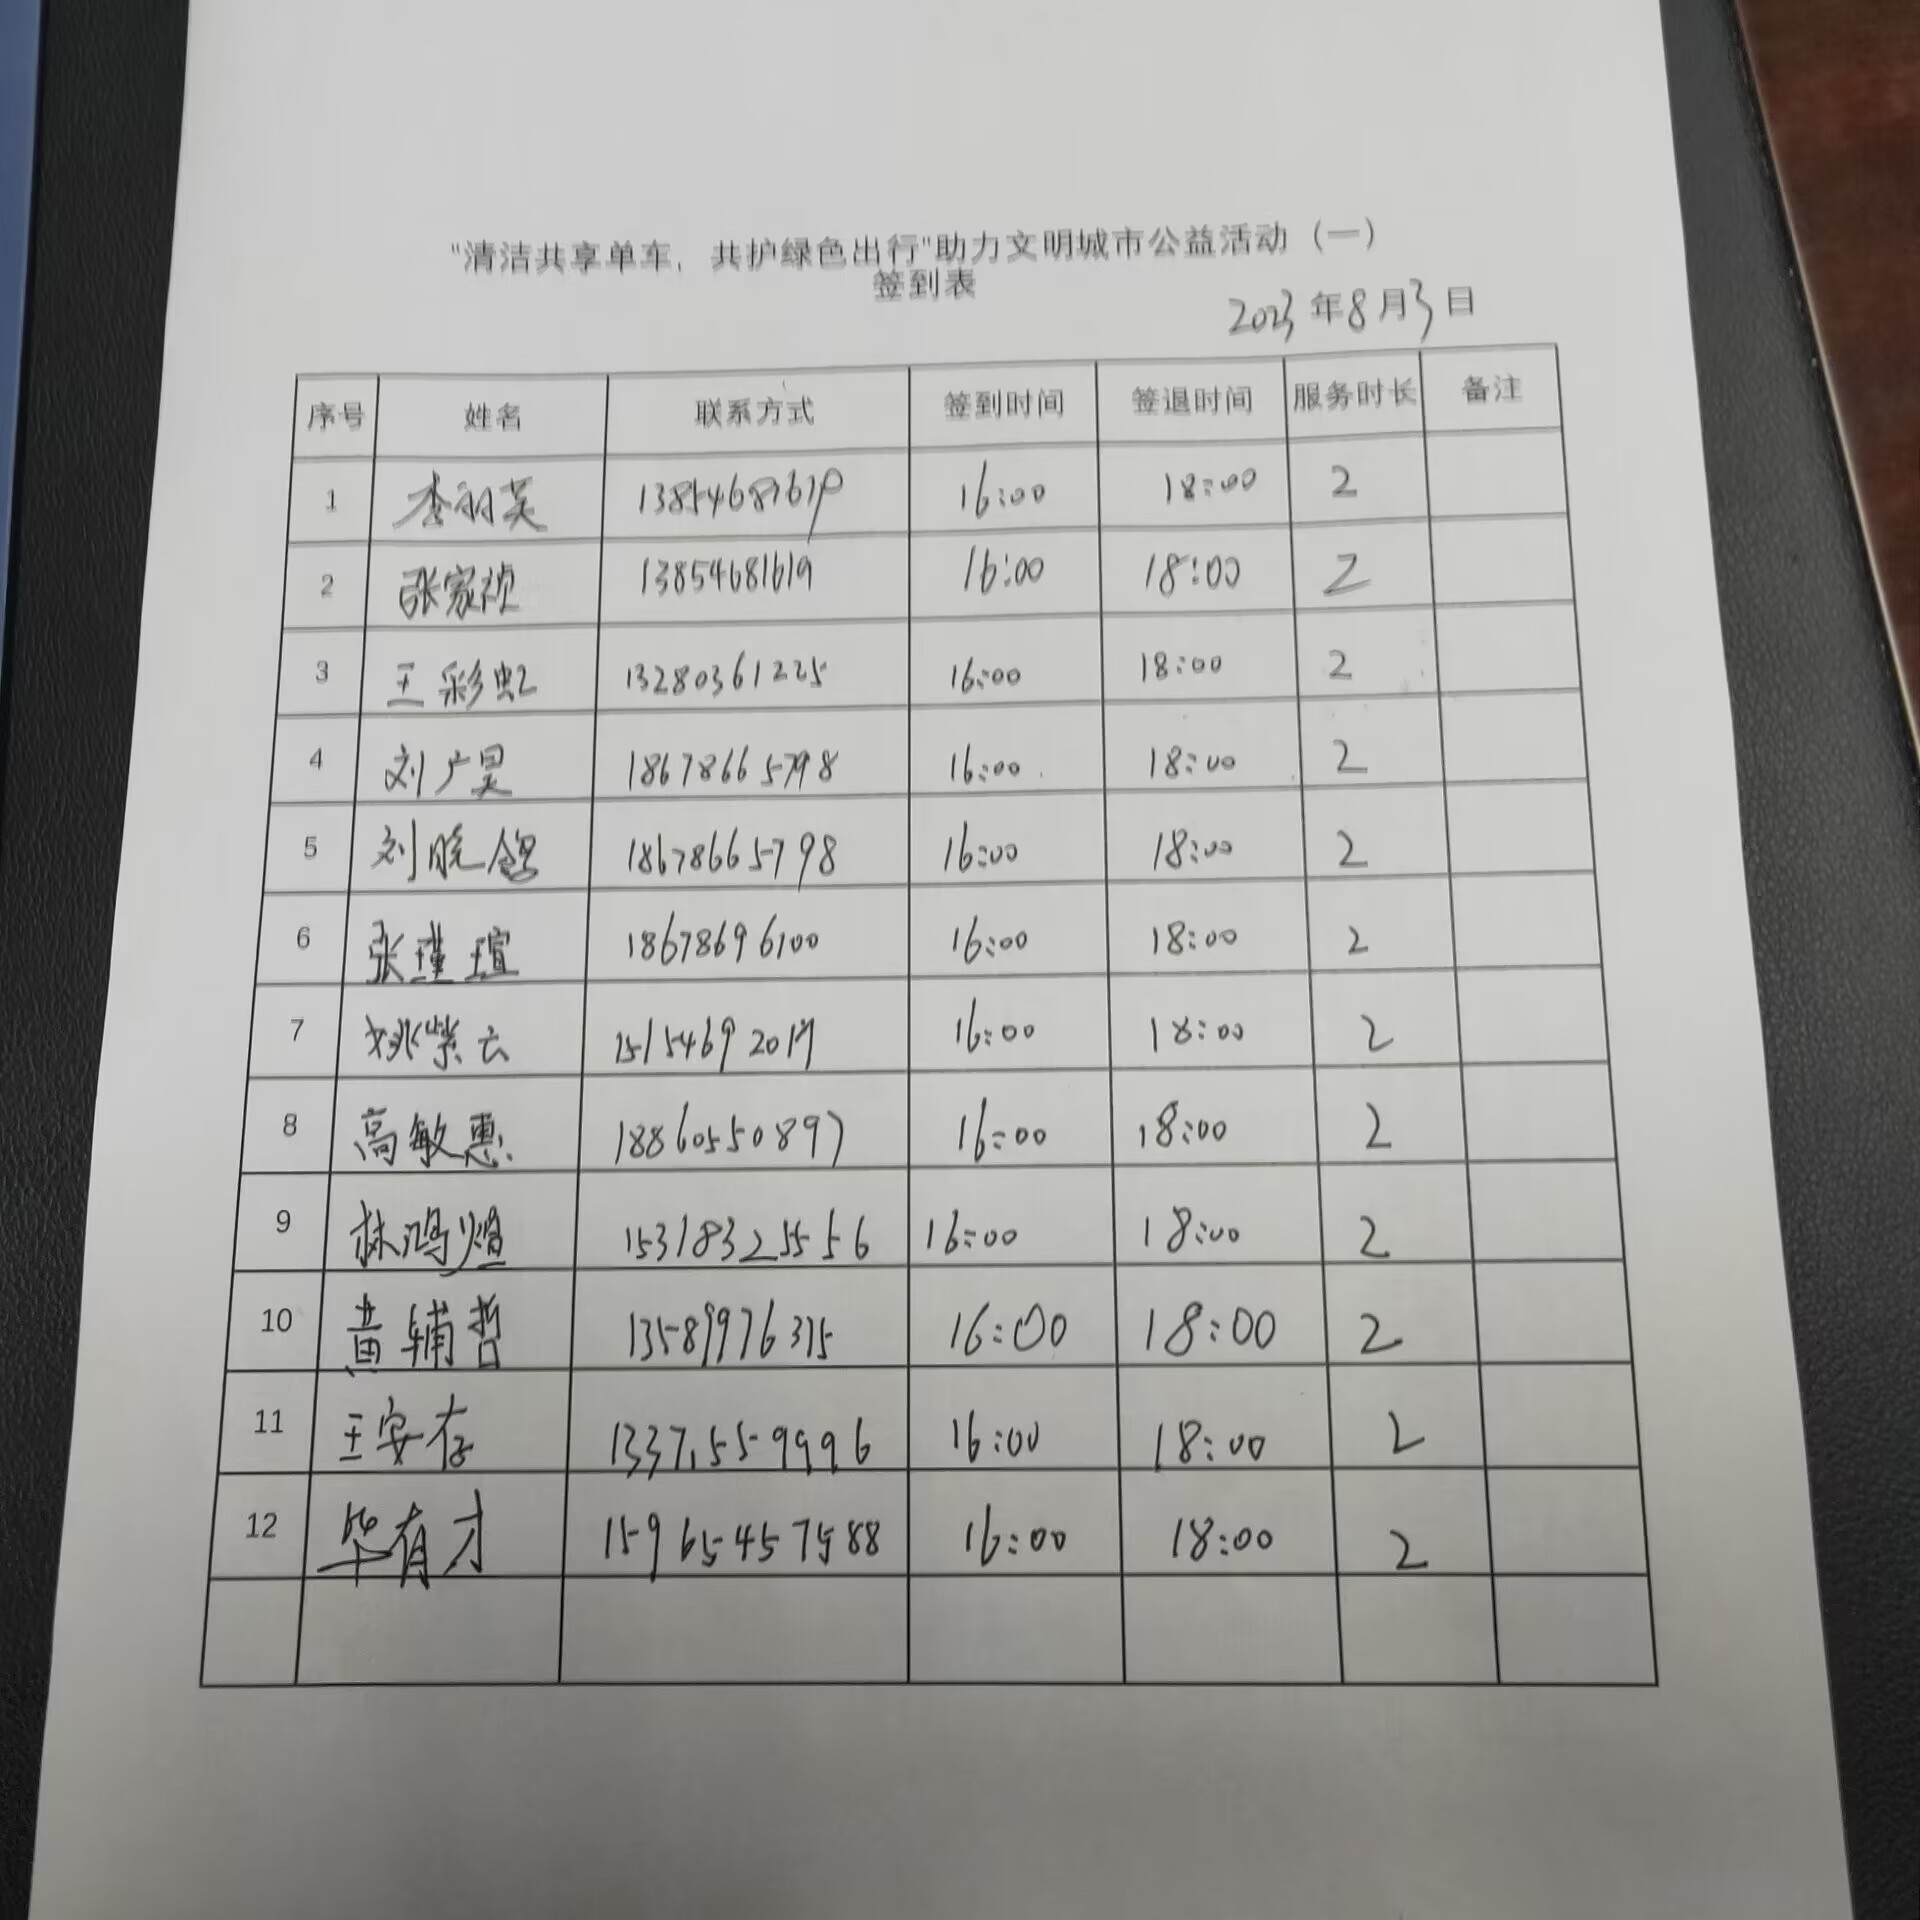 "清洁共享单车，共护绿色出行"助力文明城市公益活动（一）
签到表
2023年8月3日
序号 姓名 联系方式 签到时间 签退时间 服务时长 备注
1 李羽芙 16:00 18:00 2
2 张家祯 13854681619 16:00 18:00 2
3 王彩虹 13280361225 16:00 18:00 2
4 刘广昊 18678665798 16:00 18:00 2
5 刘晓鸽 18678665798 16:00 18:00 2
6 张瑾瑄 18678696100 16:00 18:00 2
7 姚紫云 16:00 18:00 2
8 高敏惠 18860550897 16:00 18:00 2
9 林鸿煊 15318325556 16:00 18:00 2
10 黄辅哲 13589976375 16:00 18:00 2
11 王安存 13371559996 16:00 18:00 2
12 毕有才 159654457588 16:00 18:00 2